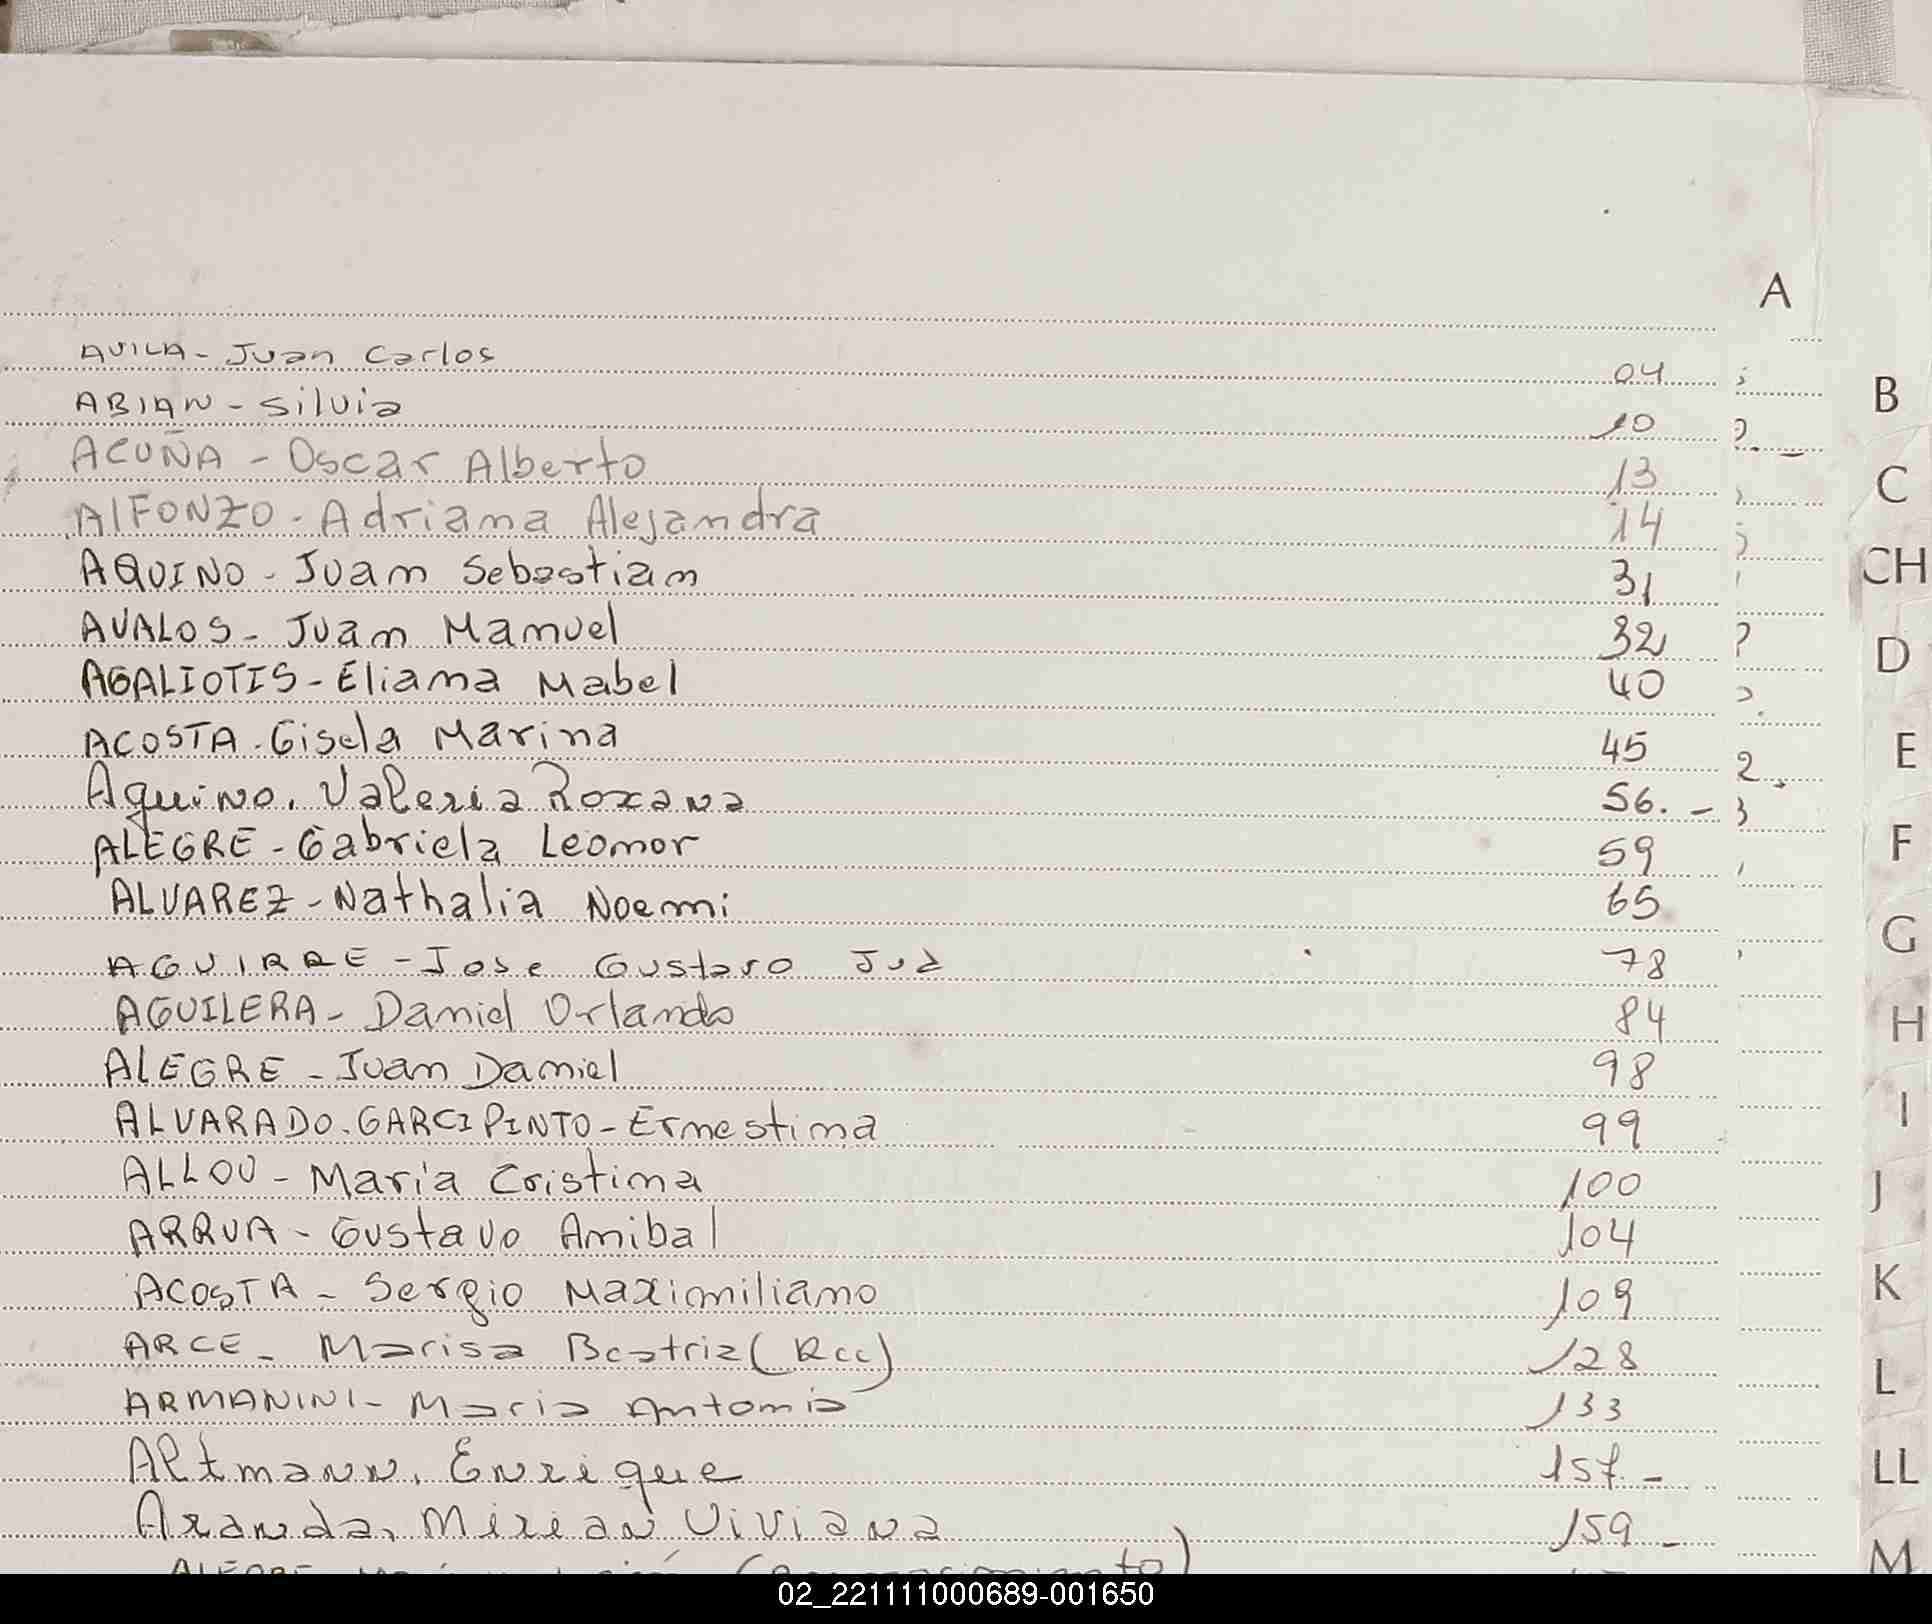 A
AVILA - Juan Carlos 04
ABIAN - Silvia 10
ACUÑA - Oscar Alberto 13
AlFONZO - Adriana Alejandra 14
AQUINO - Juan Sebastian 31
AVALOS - Juan Manuel 32
AGALIOTIS - Eliana Mabel 40
ACOSTA - Gisela Marina 45
Aquino, Valeria Roxana 56. -
ALEGRE - Gabriela Leonor 59
ALVAREZ - Nathalia Noemi 65
AGUIRRE - Jose Gustavo 78
AGUILERA - Daniel Orlando 84
AlEGRE - Juan Daniel 98
ALVARADO. GARCIPINTO - Ernestina 99
ALLOU - María Cristina 100
ARRUA - Gustavo Anibal 104
ACOSTA - Sergio Maximiliano 109
ARCE - Marisa Beatriz (Rcc) 128
ARMANINI - Maria Antonia 133
Altmann, Enrique 157. -
Aranda, Mirian Viviana 159 -
ALEGRE
B
C
CH
D
E
F
G
H
I
J
K
L
LL
M
02_221111000689-001650